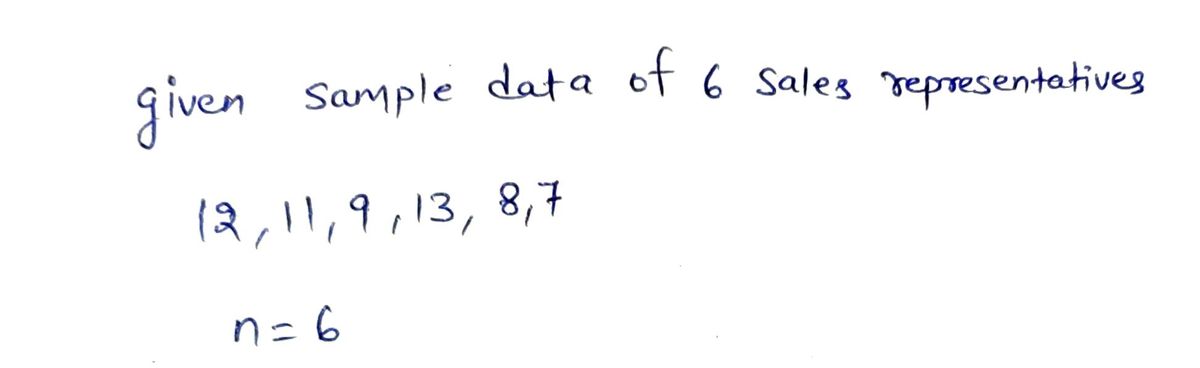 given sample data of 6 Sales representatives
12, 11, 9, 13, 8, 7
n = 6